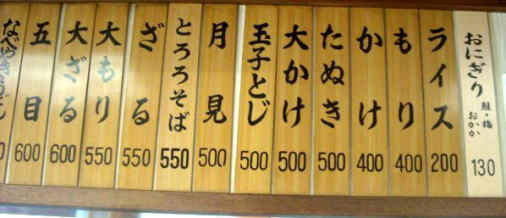 おにぎり 鮭・梅 おかか 130
ライス 200
もり 400
かけ 400
たぬき 500
大かけ 500
玉子とじ 500
月見 500
とろろそば 550
ざる 550
大もり 550
大ざる 600
五目 600
なべやきうどん